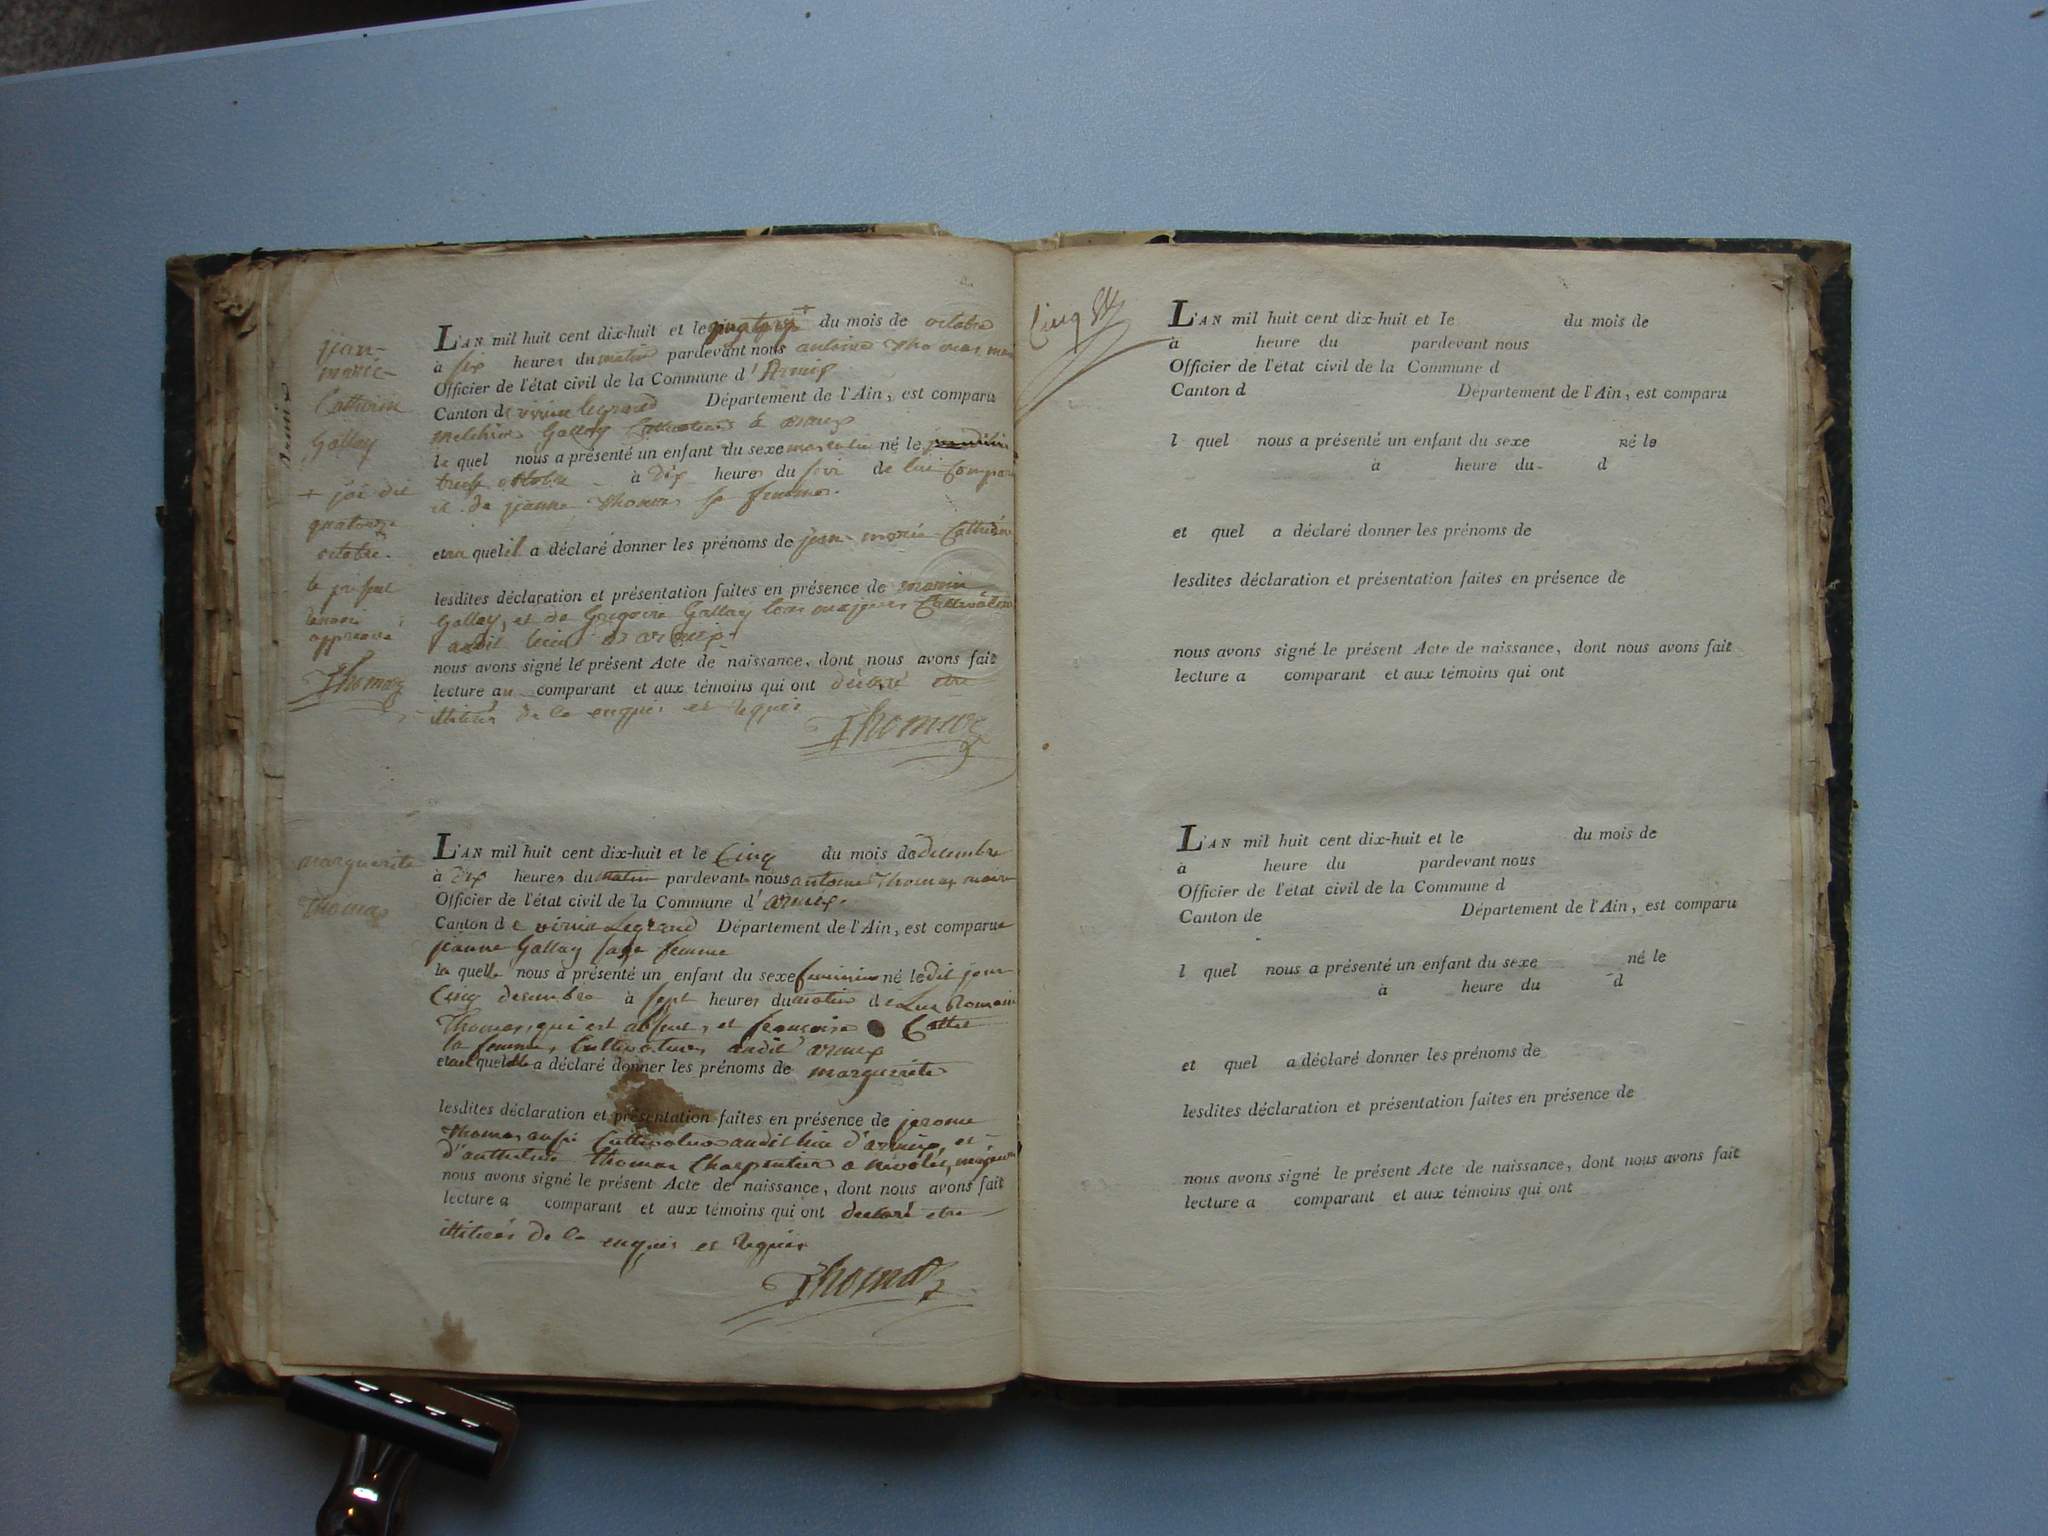 jean-
marie-
Catherin
Gallay
+ j'ai dit
quatorze
octobre.
le présent
renvoi
approuvé
Thomas
L'AN mil huit cent dix-huit et le du mois de octobre
à six heures du matin pardevant nous antoine Thomas maire
Officier de l'état civil de la Commune d'Armix
Canton de virieu legrand Département de l'Ain, est comparu
melchior Gallay Cultivateur à armix
le quel nous a présenté un enfant du sexe masculin né le
treize octobre à dix heures du soir de lui Comparant
et de jeanne Thomas sa femme.
et au quel il a déclaré donner les prénoms de jean-marie Catherin
lesdites déclaration et présentation faites en présence de
Gallay, et de Grégoire Gallay tous majeurs Cultivateurs
audit lieu d'armix.
nous avons signé le présent Acte de naissance, dont nous avons fait
lecture au comparant et aux témoins qui ont déclaré etre
illitérés de ce enquis et requis
Thomas
marguerite
Thomas
L'AN mil huit cent dix-huit et le Cinq du mois de decembre
à dix heures du matin pardevant nous antoine Thomas maire
Officier de l'état civil de la Commune d'armix.
Canton de virieu Legrand Département de l'Ain, est comparue
jeanne Gallay sage femme
la quelle nous a présenté un enfant du sexe feminin né le dit jour
Cinq decembre à sept heures du matin de Romain
Thomas, qui est absent, et françoise Cottet
sa femme, Cultivateurs audit armix
et au quel elle a déclaré donner les prénoms de marguerite
lesdites déclaration et présentation faites en présence de jerome
Thomas aussi Cultivateur audit lieu d'armix, et
d'anthelme Thomas Charpentier a nivolet, majeurs
nous avons signé le présent Acte de naissance, dont nous avons fait
lecture a comparant et aux témoins qui ont declaré etre
illitérés de ce enquis et requis
Thomas
Cinq
L'AN mil huit cent dix-huit et le du mois de
à heure du pardevant nous
Officier de l'état civil de la Commune d
Canton d Département de l'Ain, est comparu
l quel nous a présenté un enfant du sexe né le
à heure du d
et quel a déclaré donner les prénoms de
lesdites déclaration et présentation faites en présence de
nous avons signé le présent Acte de naissance, dont nous avons fait
lecture a comparant et aux témoins qui ont
L'AN mil huit cent dix-huit et le du mois de
à heure du pardevant nous
Officier de l'état civil de la Commune d
Canton de Département de l'Ain, est comparu
l quel nous a présenté un enfant du sexe né le
à heure du d
et quel a déclaré donner les prénoms de
lesdites déclaration et présentation faites en présence de
nous avons signé le présent Acte de naissance, dont nous avons fait
lecture a comparant et aux témoins qui ont